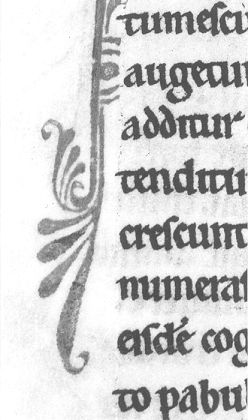 tumesci
augetur
additur
tenditu
crescunt
numerat
eiſdē cog
to pabu